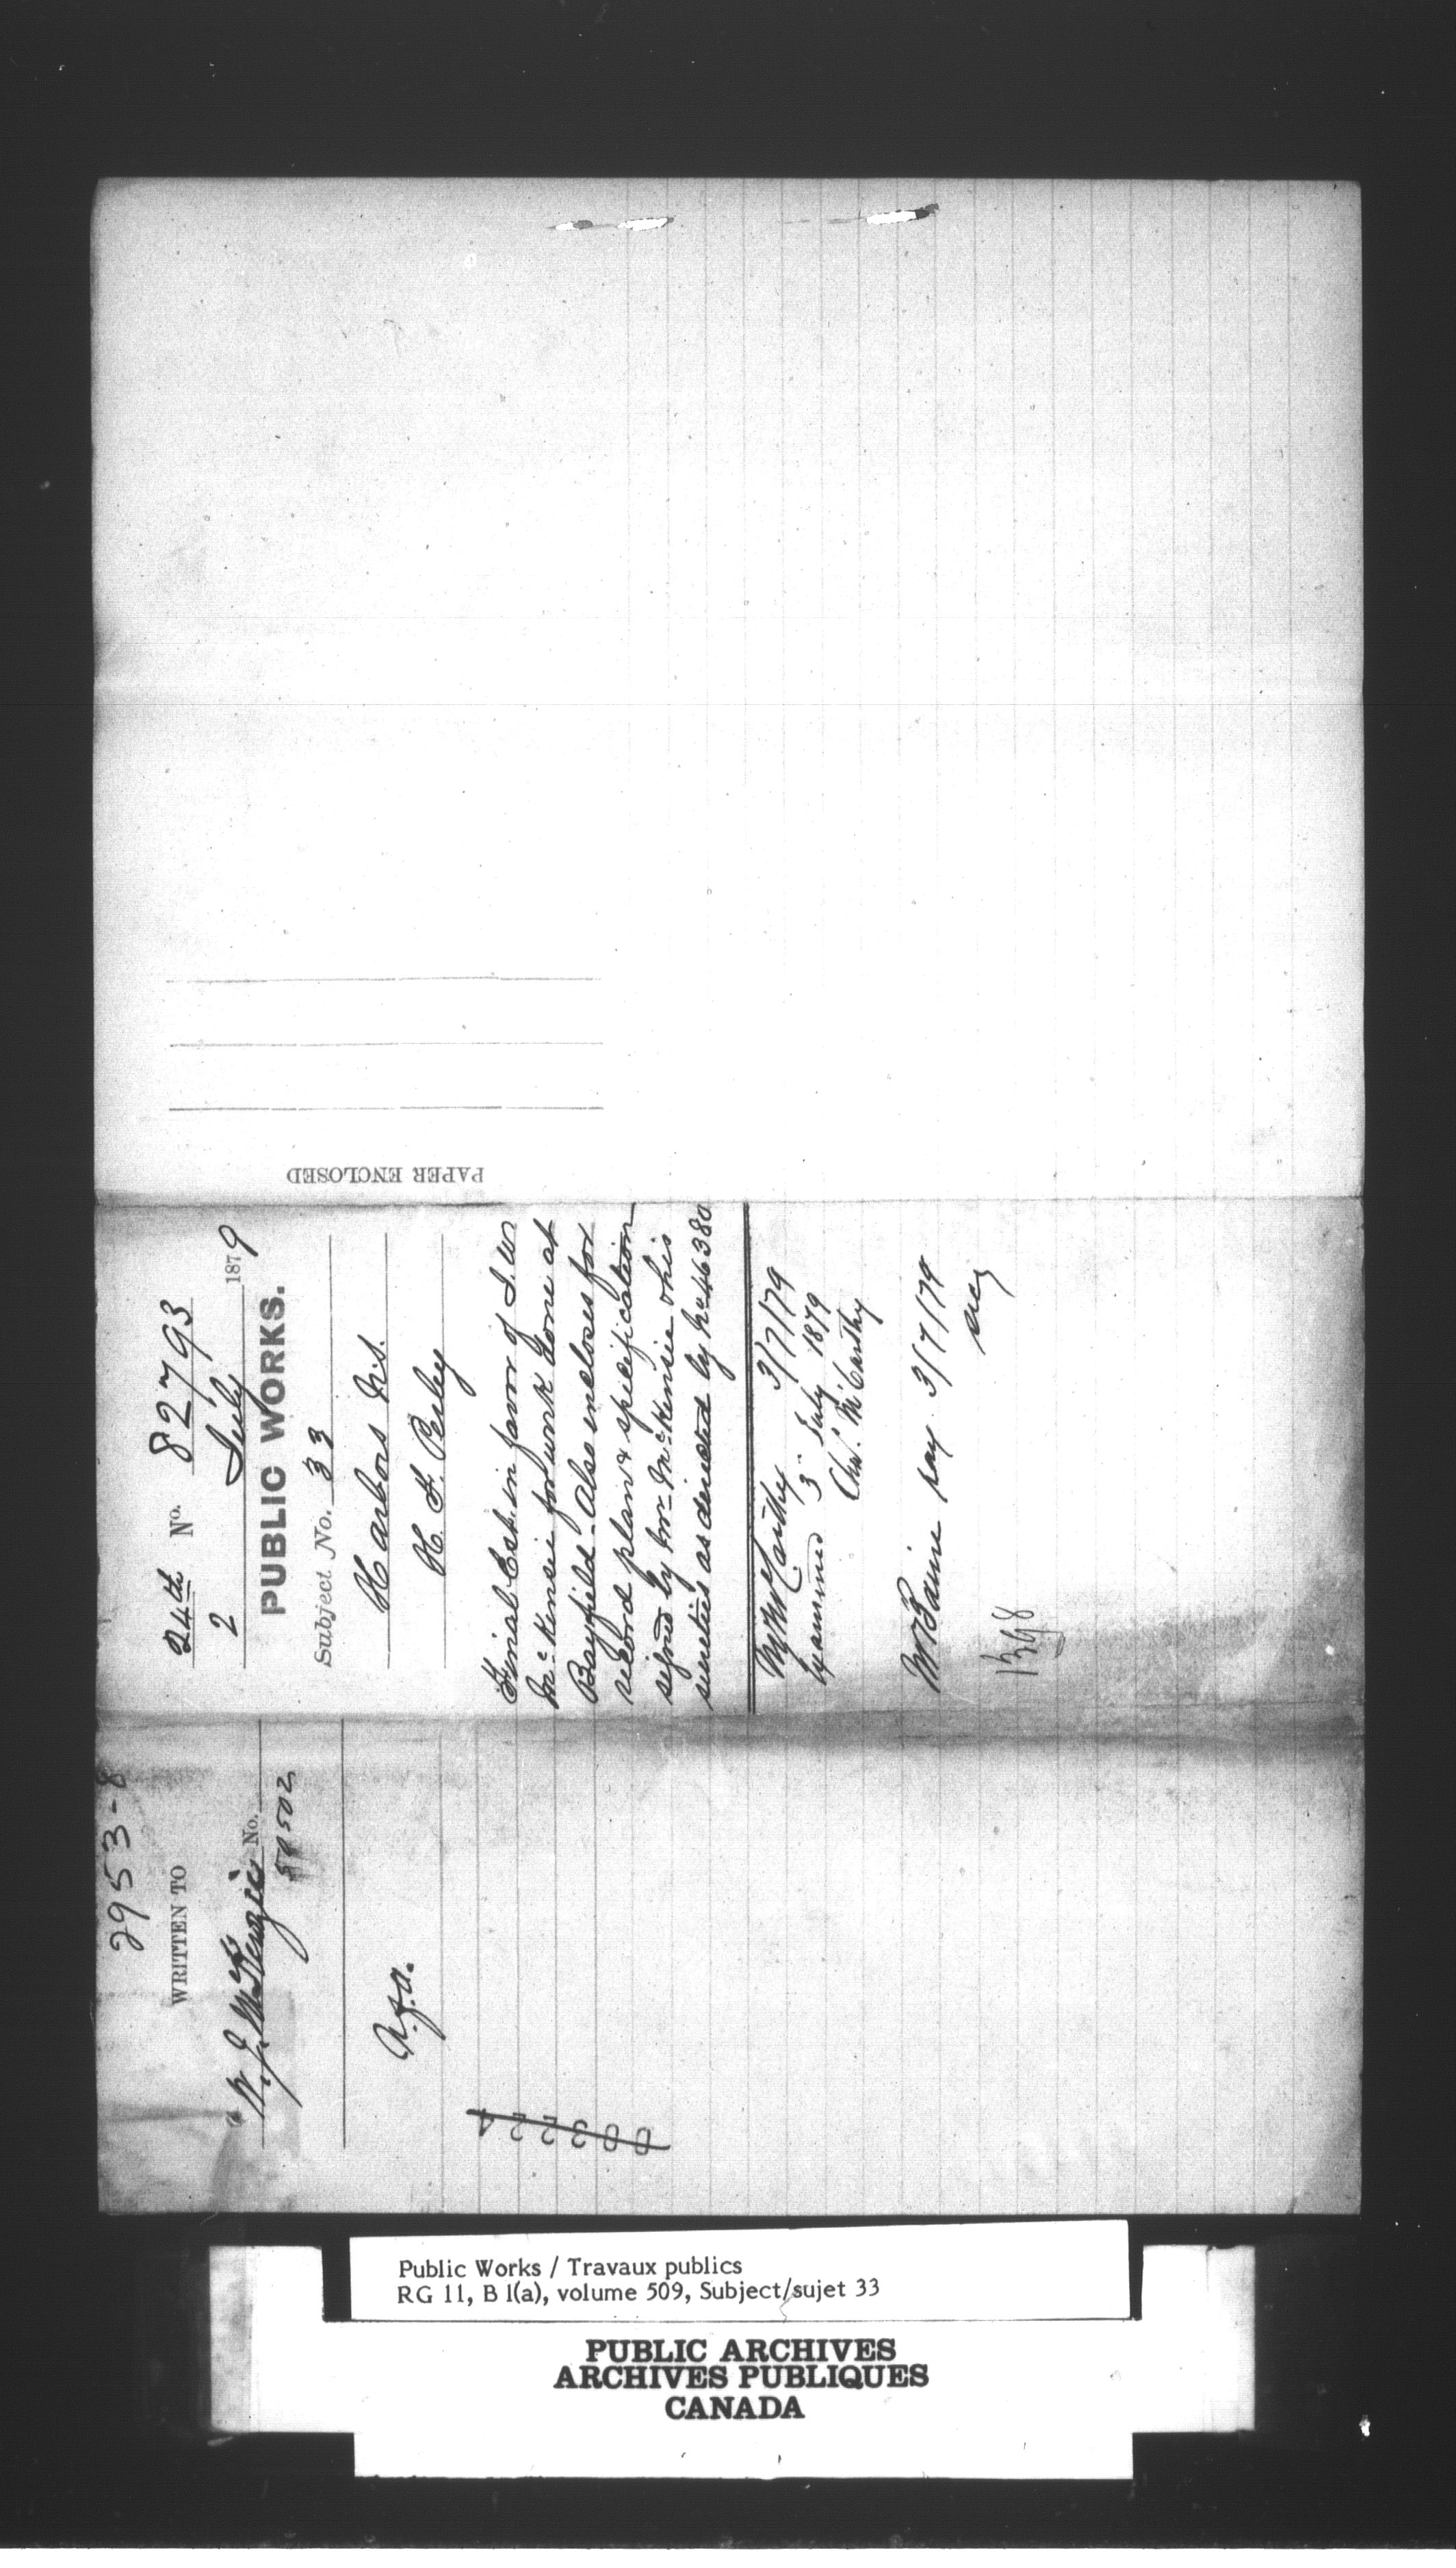 2953-8
WRITTEN TO
W. J. McKenzie No.
59502
a.f.a.
003224
24th No. 82793
2 July 1879
PUBLIC WORKS.
Subject No. 33
Harbors N.S.
H. F. Perley
Final Est. in favor of J. W
McKensie for work done at
Bayfield. Also incloses for
record plan & specification
signed by Wm McKensie & his
sureties as directed by No 46380
Mr McCarthy 3/7/79
Examined 3 July 1879
Chs. McCarthy
Mr Baine pay 3/7/79
PAPER ENCLOSED
Public Works / Travaux publics
RG 11, B 1(a), volume 509, Subject/sujet 33
PUBLIC ARCHIVES
ARCHIVES PUBLIQUES
CANADA